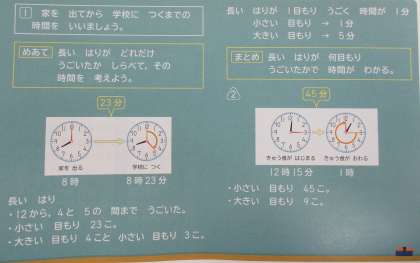 1 家を 出てから 学校に つくまでの
時間を いいましょう。
めあて 長い はりが どれだけ
うごいたか しらべて、その
時間を 考えよう。
23分
家を 出る
学校に つく
8時
8時23分
長い はり
・12から、4と 5の 間まで うごいた。
・小さい 目もり 23こ。
・大きい 目もり 4こと 小さい 目もり 3こ。
長い はりが 1目もり うごく 時間が 1分
小さい 目もり → 1分
大きい 目もり → 5分
まとめ 長い はりが 何目もり
うごいたかで 時間が わかる。
2
45分
きゅう食が はじまる
きゅう食が おわる
12時15分
1時
・小さい 目もり 45こ。
・大きい 目もり 9こ。